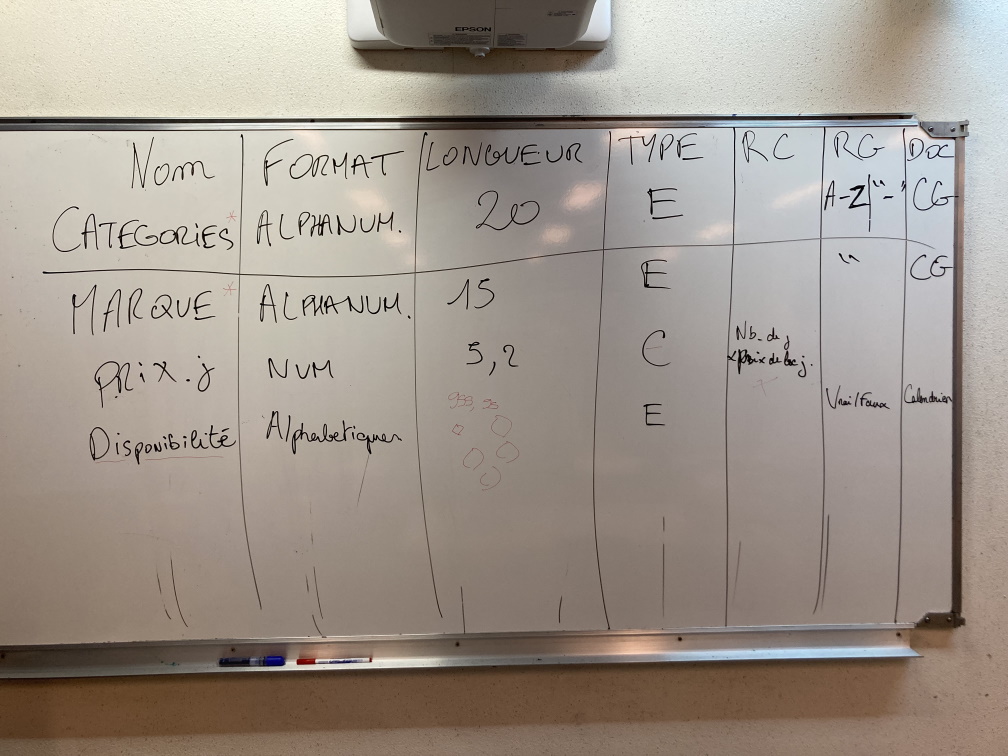 EPSON
Nom FORMAT LONGUEUR TYPE RC RG DOC
CATEGORIES* ALPHANUM. 20 E A-Z "-" CG
MARQUE* ALPHANUM. 15 E " CG
PRIX.j NUM 5,2 C Nb. de j
x prix de loc j.
999,99
Disponibilité Alphabetiques E Vrai/Faux Calendrier